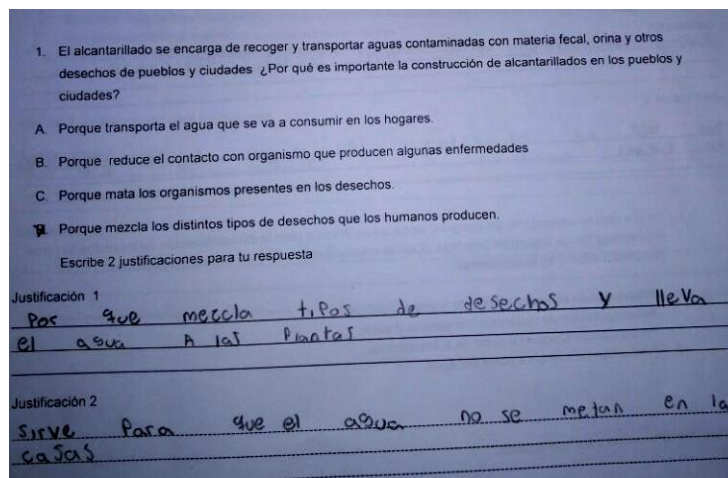 1. El alcantarillado se encarga de recoger y transportar aguas contaminadas con materia fecal, orina y otros
desechos de pueblos y ciudades ¿Por qué es importante la construcción de alcantarillados en los pueblos y
ciudades?
A. Porque transporta el agua que se va a consumir en los hogares.
B. Porque reduce el contacto con organismo que producen algunas enfermedades
C. Porque mata los organismos presentes en los desechos.
Porque mezcla los distintos tipos de desechos que los humanos producen.
Escribe 2 justificaciones para tu respuesta
Justificación 1
Por que meccla tipos de desechos y lleva
el agua A las Plantas
Justificación 2
Sirve Para que el agua no se metan en la
casas